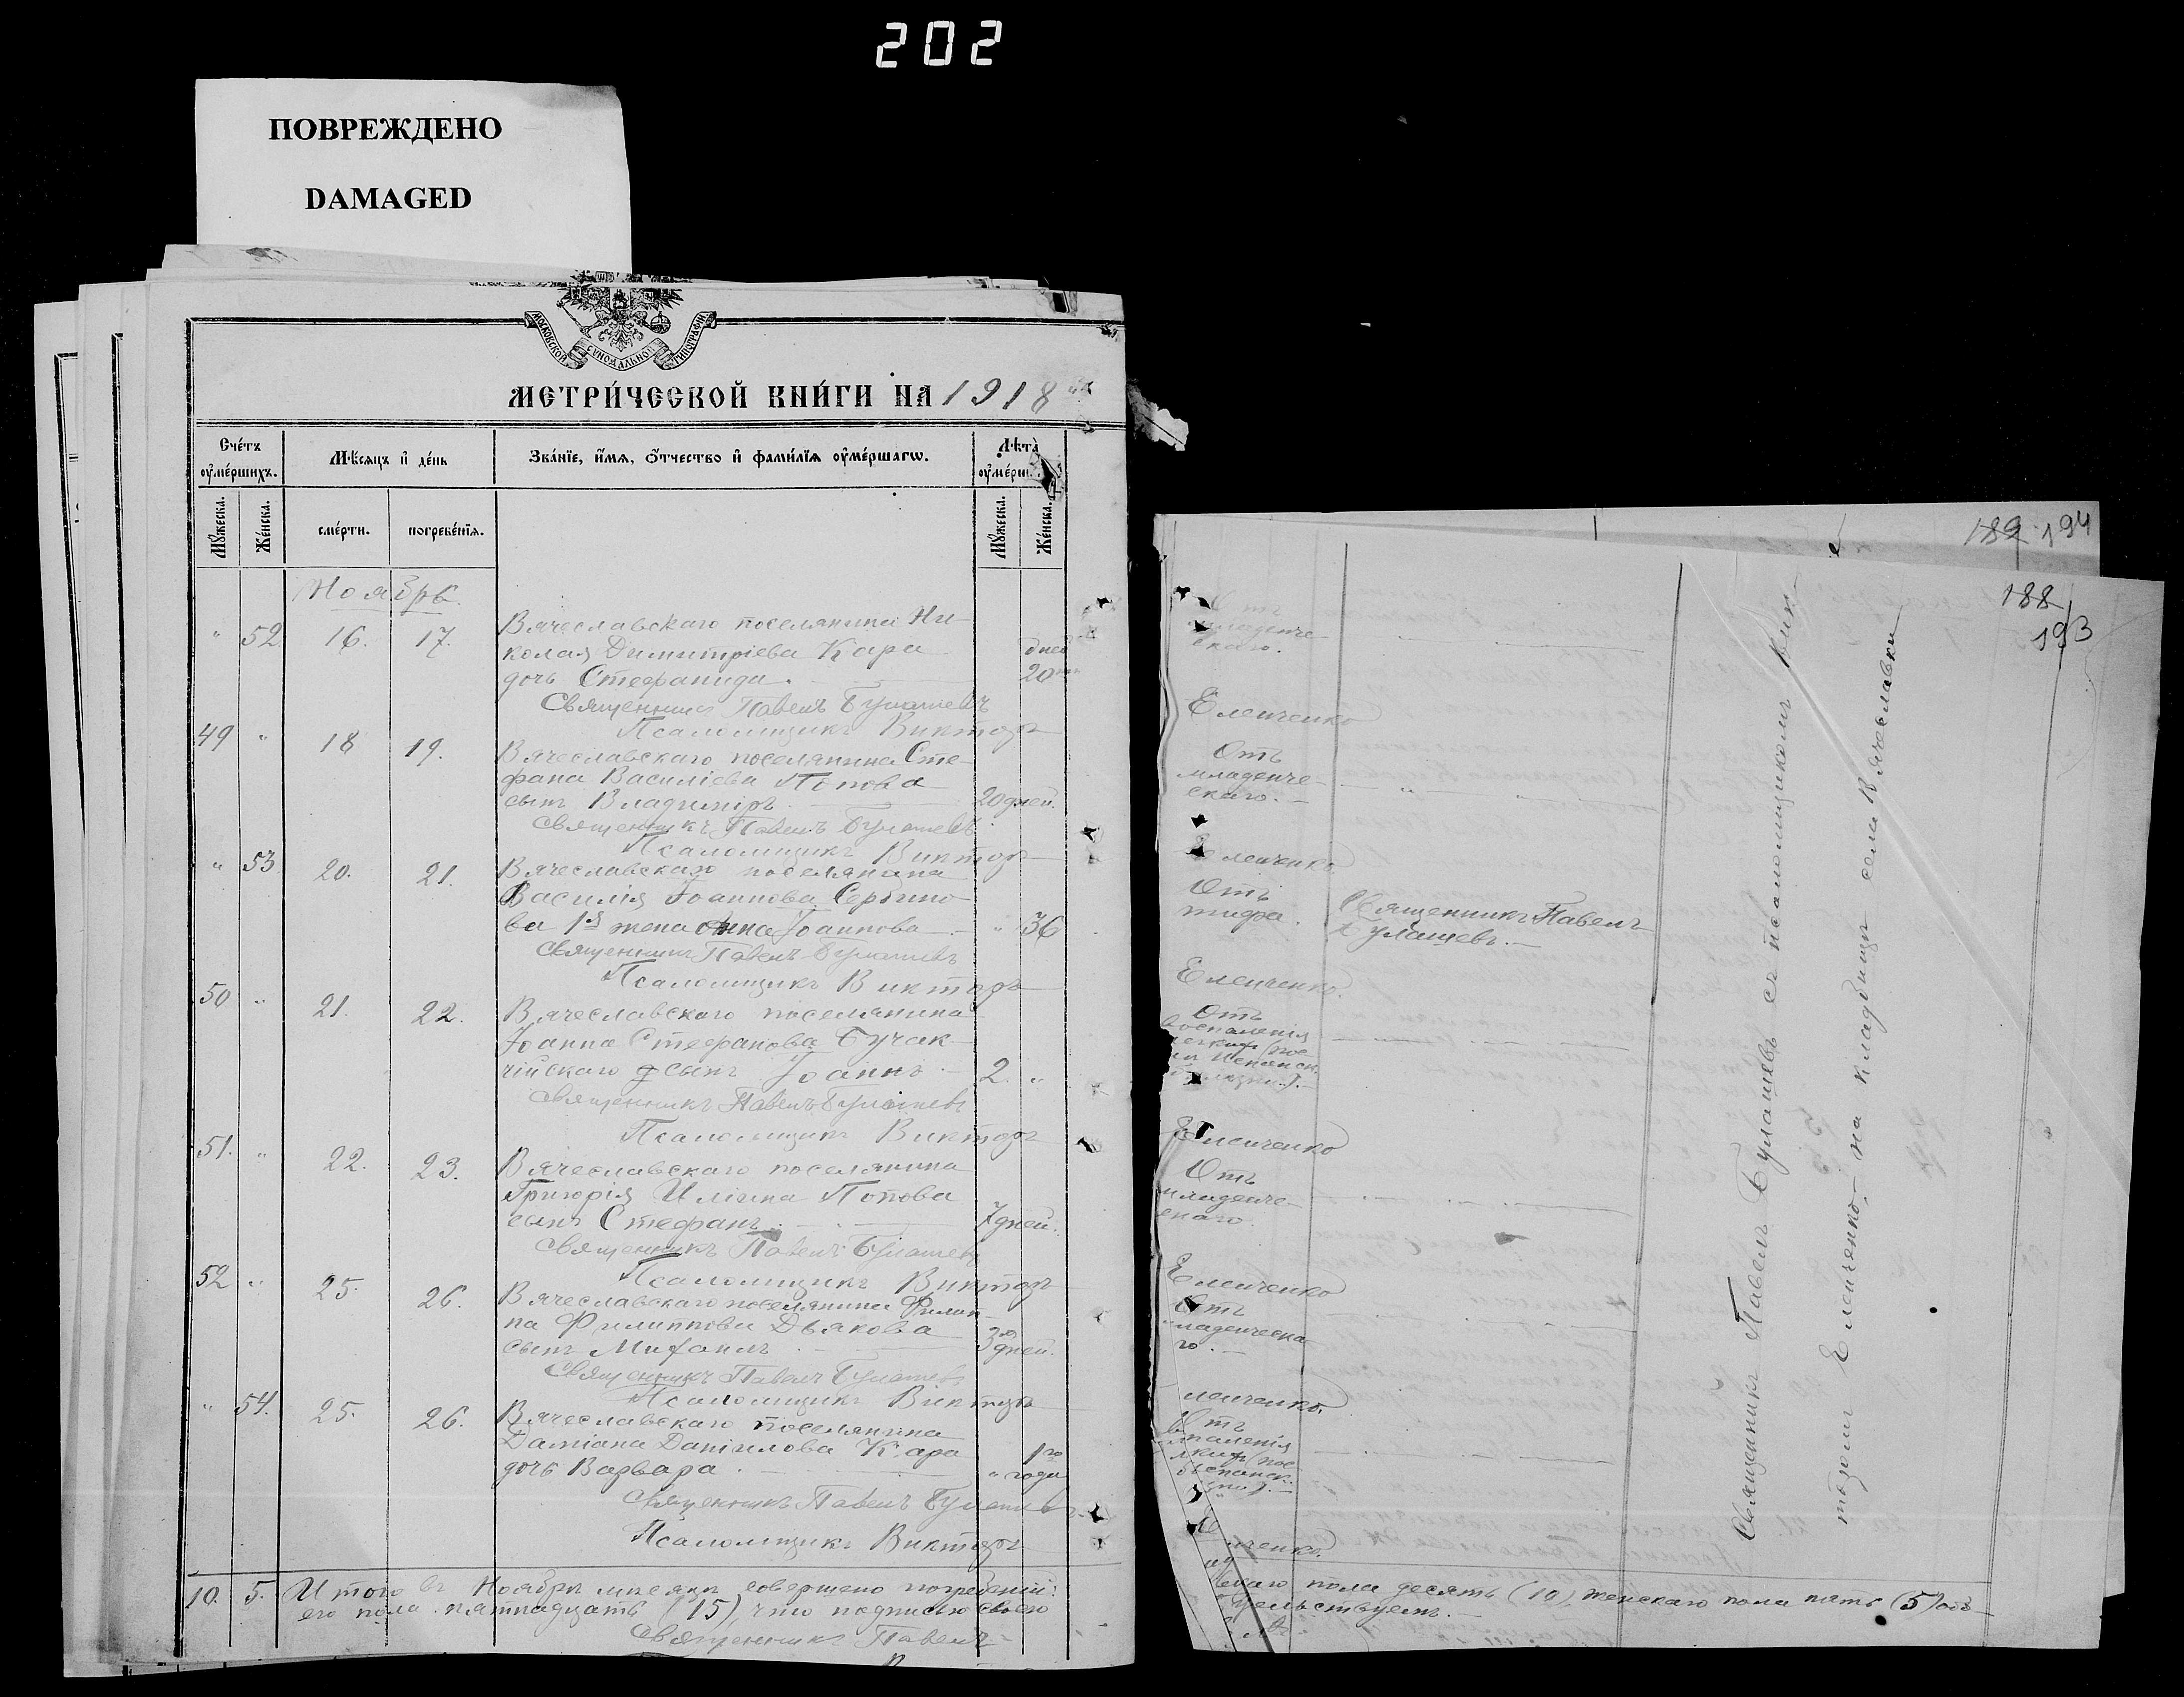 202
ПОВРЕЖДЕНО
DAMAGED
МОСКОВСКОЙ СУНОДАЛЬНОЙ ТИПОГРАФІИ
МЕТРИ́ЧЕСКОЙ КНИ́ГИ НА 1918
Сче́тъ оу҆ме́ршихъ.
Мѣ́сяцъ и҆ де́нь
Зва́нїе, и҆́мѧ, ѻ҆́тчество и҆ фамилїѧ оу҆ме́ршагѡ.
Лѣта̀ оу҆ме́рш
Мꙋ́жеска. Же́нска. сме́рти. погребе́нїѧ. Мꙋ́жеска. Же́нска.
Ноябрь.
" 52 16. 17. Вячеславскаго поселянина Ни-
колая Димитріева Кара дней
дочь Стефанида. 20
Священникъ Павелъ Булашевъ
Псаломщикъ Викторъ
49 " 18 19. Вячеславскаго поселянина Сте-
фана Василіева Попова
сынъ Владиміръ. 20 дней.
Священникъ Павелъ Булашевъ
Псаломщикъ Викторъ
" 53 20. 21. Вячеславскаго поселянина
Василія Іоаннова Сербино-
ва 1я жена Анна Іоаннова " 36
Священникъ Павелъ Булашевъ
Псаломщикъ Викторъ
50 " 21. 22. Вячеславскаго поселянина
Іоанна Стефанова Бучак-
чійскаго сынъ Іоаннъ 2. "
Священникъ Павелъ Булашевъ
Псаломщикъ Викторъ
51. " 22. 23. Вячеславскаго поселянина
Григорія Иліина Попова
сынъ Стефанъ. 7 дней.
Священникъ Павелъ Булашевъ
Псаломщикъ Викторъ
52 " 25. 26. Вячеславскаго поселянина Филип-
па Филиппова Дьякова 3хъ
сынъ Михаилъ дней.
Священникъ Павелъ Булашевъ
Псаломщикъ Викторъ
" 54. 25. 26. Вячеславскаго поселянина
Даміана Даніилова Кара 1го
дочь Варвара. " года
Священникъ Павелъ Булашевъ
Псаломщикъ Викторъ
10. 5. Итого въ Ноябрѣ мѣсяцѣ совершено погребеній:
его пола пятнадцать (15), что подписью своею
Священникъ Павелъ
189 194
188
193
Отъ
младенче-
скаго.
Еленченко
Отъ
младенче-
скаго.
Еленченко
Отъ
тифа. Священникъ Павелъ
Булашевъ.
Еленченко.
Отъ
воспаленія
легкихъ (пос-
Еленченко
Отъ
младенче-
скаго.
Еленченко
Отъ
младенческа
го.
ленченко.
Отъ
паленія
нченко.
Священникъ Павелъ Булашевъ съ псаломщикомъ Вик-
торомъ Еленченко на кладбищѣ села Вячеславки
скаго пола десять (10), женскаго пола пять (5) обо-
дѣтельствуемъ.